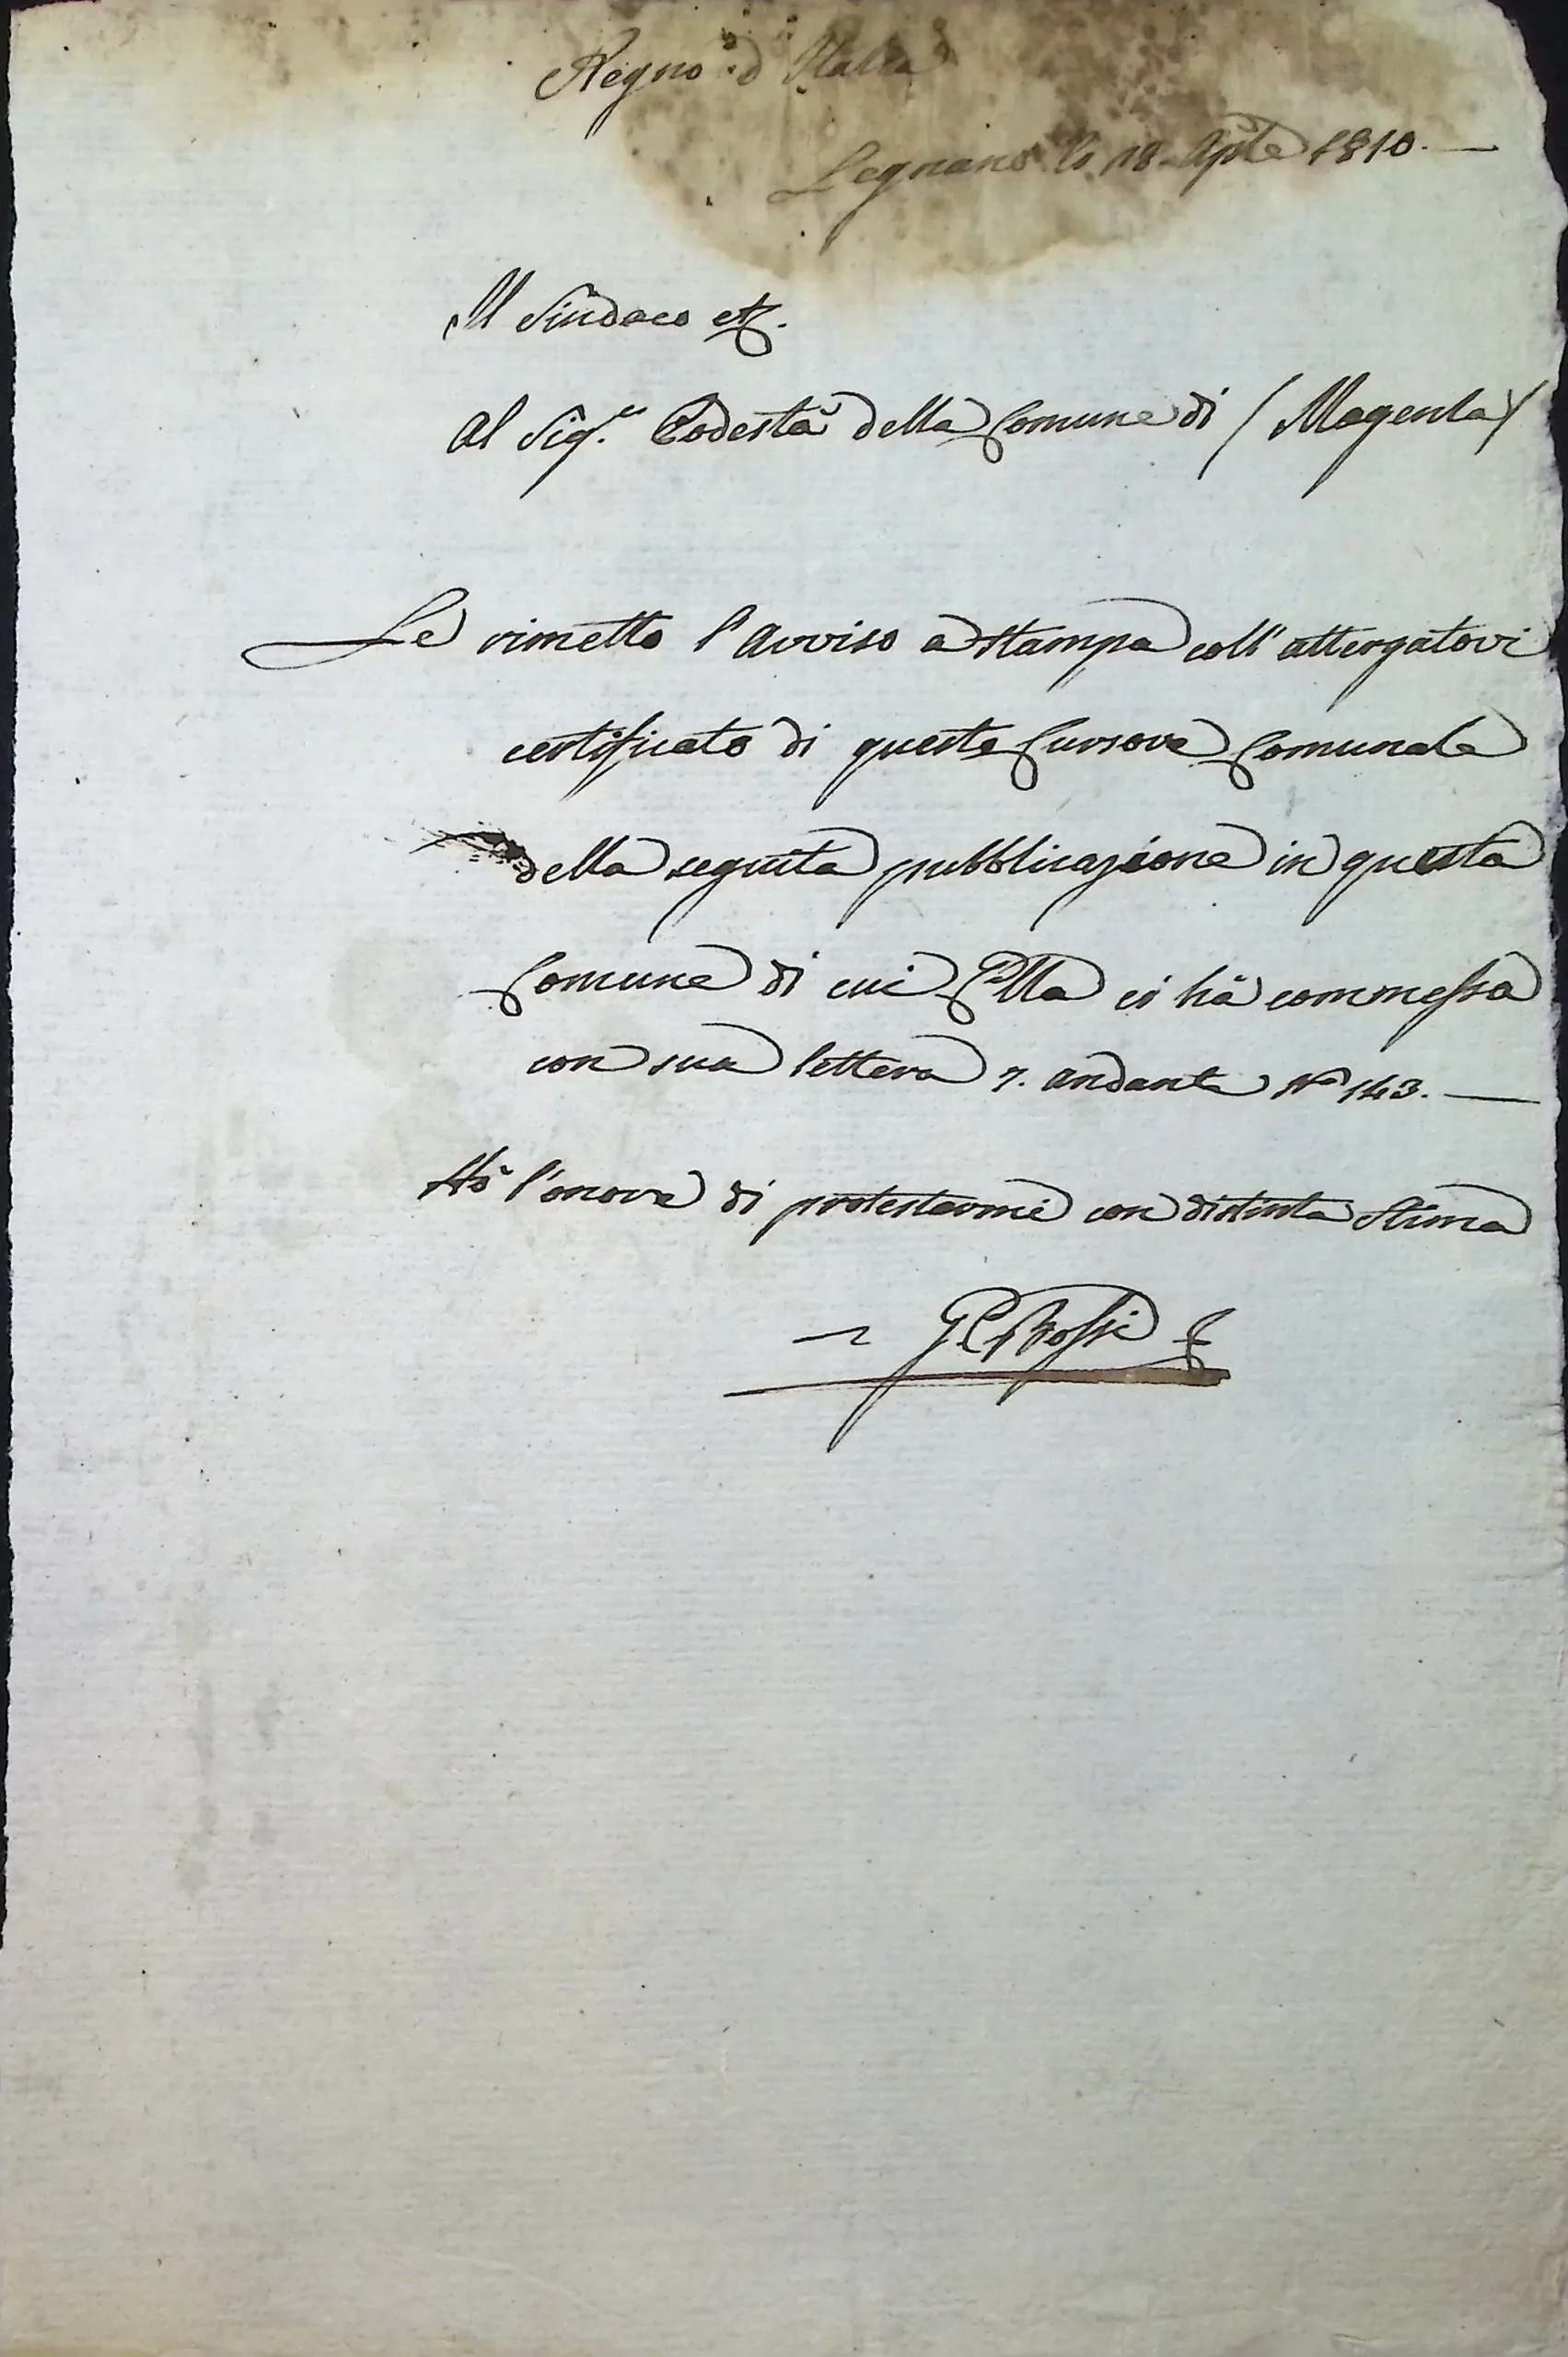 Regno d'Italia
Legnano li 18. Aple 1810.
Il Sindaco etc.
Al Sigr. Podestà della Comune di (Magenta)
Le rimetto l'Avviso a stampa coll'attergatovi
certificato di questo Cursore Comunale
della seguita pubblicazione in questa
Comune di cui Ella ci hà commessa
con sua lettera 7. andante No 143.
Hò l'onore di protestarmi con distinta stima
Bossi